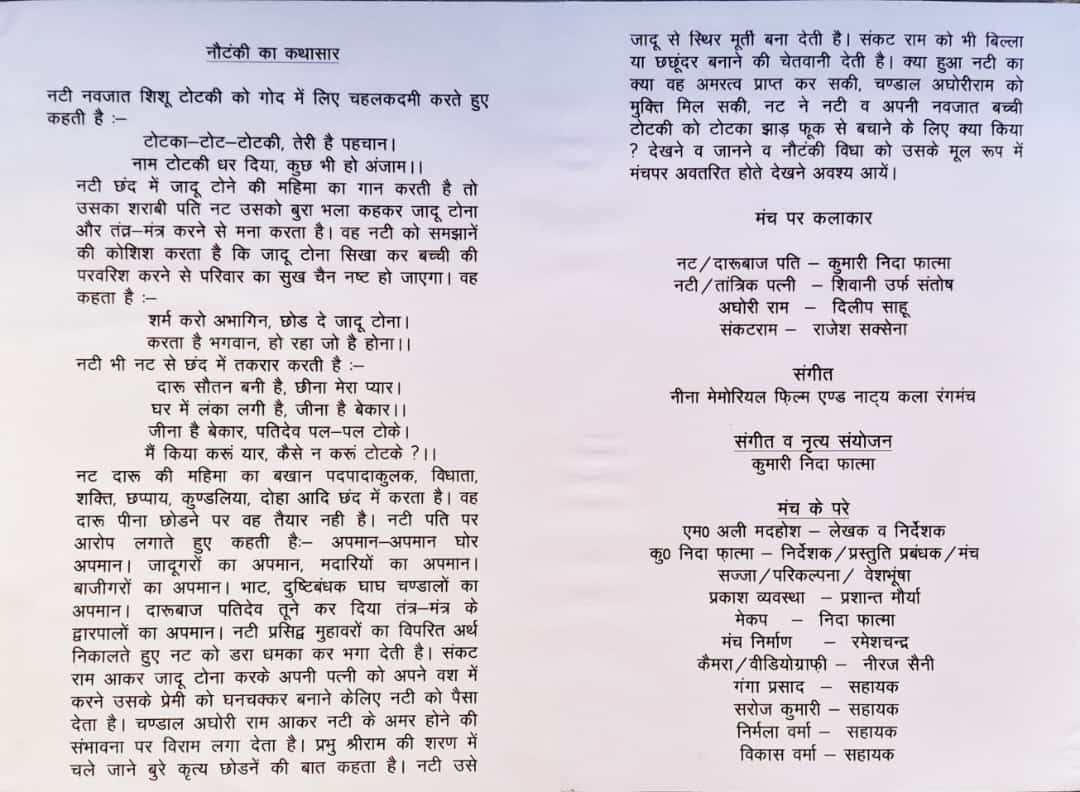 नौटंकी का कथासार
नटी नवजात शिशू टोटकी को गोद में लिए चहलकदमी करते हुए
कहती है :–
टोटका–टोट–टोटकी, तेरी है पहचान।
नाम टोटकी धर दिया, कुछ भी हो अंजाम।।
नटी छंद में जादू टोने की महिमा का गान करती है तो
उसका शराबी पति नट उसको बुरा भला कहकर जादू टोना
और तंत्र–मंत्र करने से मना करता है। वह नटी को समझानें
की कोशिश करता है कि जादू टोना सिखा कर बच्ची की
परवरिश करने से परिवार का सुख चैन नष्ट हो जाएगा। वह
कहता है :–
शर्म करो अभागिन, छोड दे जादू टोना।
करता है भगवान, हो रहा जो है होना।।
नटी भी नट से छंद में तकरार करती है :–
दारू सौतन बनी है, छीना मेरा प्यार।
घर में लंका लगी है, जीना है बेकार।।
जीना है बेकार, पतिदेव पल–पल टोके।
मैं किया करूं यार, कैसे न करूं टोटके ?।।
नट दारू की महिमा का बखान पदपादाकुलक, विधाता,
शक्ति, छप्पाय, कुण्डलिया, दोहा आदि छंद में करता है। वह
दारू पीना छोडने पर वह तैयार नही है। नटी पति पर
आरोप लगाते हुए कहती है:– अपमान–अपमान घोर
अपमान। जादूगरों का अपमान, मदारियों का अपमान।
बाजीगरों का अपमान। भाट, दुष्टिबंधक घाघ चण्डालों का
अपमान। दारूबाज पतिदेव तूने कर दिया तंत्र–मंत्र के
द्वारपालों का अपमान। नटी प्रसिद्व मुहावरों का विपरित अर्थ
निकालते हुए नट को डरा धमका कर भगा देती है। संकट
राम आकर जादू टोना करके अपनी पत्नी को अपने वश में
करने उसके प्रेमी को घनचक्कर बनाने केलिए नटी को पैसा
देता है। चण्डाल अघोरी राम आकर नटी के अमर होने की
संभावना पर विराम लगा देता है। प्रभु श्रीराम की शरण में
चले जाने बुरे कृत्य छोडनें की बात कहता है। नटी उसे
जादू से स्थिर मूर्ती बना देती है। संकट राम को भी बिल्ला
या छछूंदर बनाने की चेतवानी देती है। क्या हुआ नटी का
क्या वह अमरत्व प्राप्त कर सकी, चण्डाल अघोरीराम को
मुक्ति मिल सकी, नट ने नटी व अपनी नवजात बच्ची
टोटकी को टोटका झाड़ फूक से बचाने के लिए क्या किया
? देखने व जानने व नौटंकी विधा को उसके मूल रूप में
मंचपर अवतरित होते देखने अवश्य आयें।
मंच पर कलाकार
नट/दारूबाज पति – कुमारी निदा फात्मा
नटी/तांत्रिक पत्नी – शिवानी उर्फ संतोष
अघोरी राम – दिलीप साहू
संकटराम – राजेश सक्सेना
संगीत
नीना मेमोरियल फ़िल्म एण्ड नाट्य कला रंगमंच
संगीत व नृत्य संयोजन
कुमारी निदा फात्मा
मंच के परे
एम० अली मदहोश – लेखक व निर्देशक
कु० निदा फ़ात्मा – निर्देशक/प्रस्तुति प्रबंधक/मंच
सज्जा/परिकल्पना/ वेशभूंषा
प्रकाश व्यवस्था – प्रशान्त मौर्या
मेकप – निदा फात्मा
मंच निर्माण – रमेशचन्द्र
कैमरा/वीडियोग्राफ़ी – नीरज सैनी
गंगा प्रसाद – सहायक
सरोज कुमारी – सहायक
निर्मला वर्मा – सहायक
विकास वर्मा – सहायक